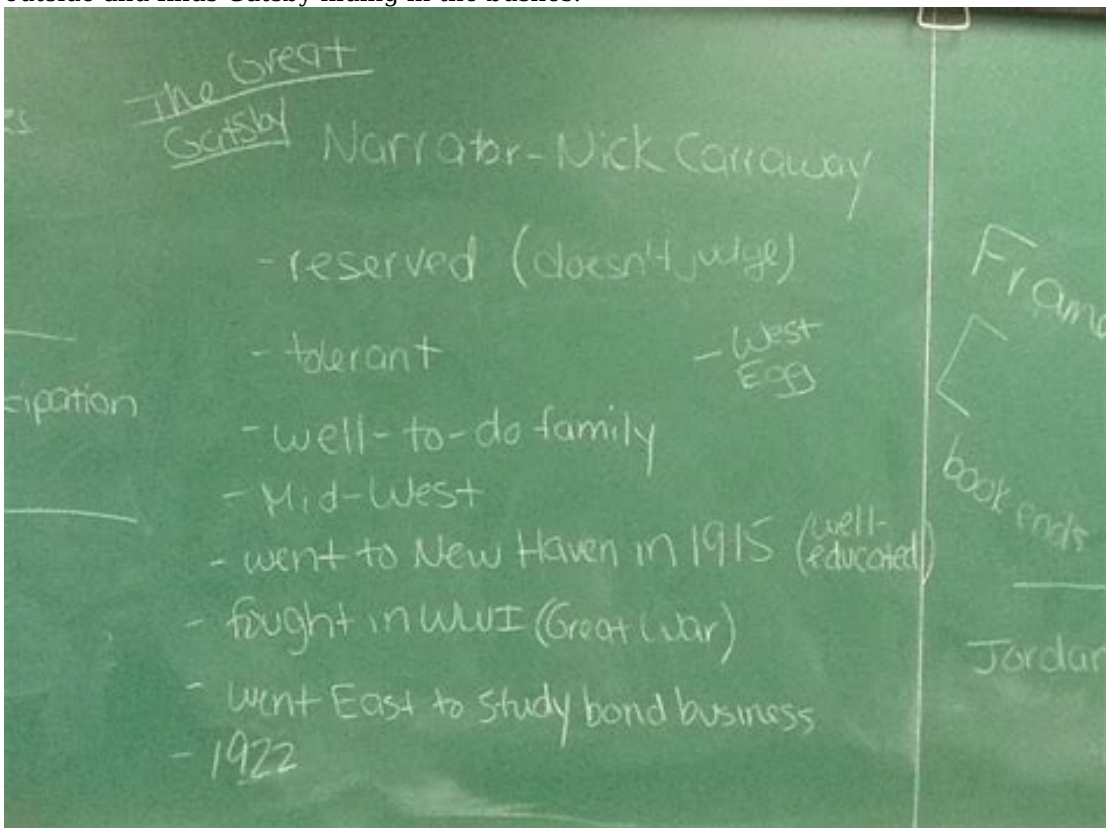 The Great
Gatsby
Narrator - Nick Carraway
- reserved (doesn't judge)
- tolerant
- West
Egg
- well-to-do family
- Mid-West
- went to New Haven in 1915 (well-
educated)
- fought in WWI (Great War)
- went East to study bond business
- 1922
cipation
Frame
book ends
Jordan